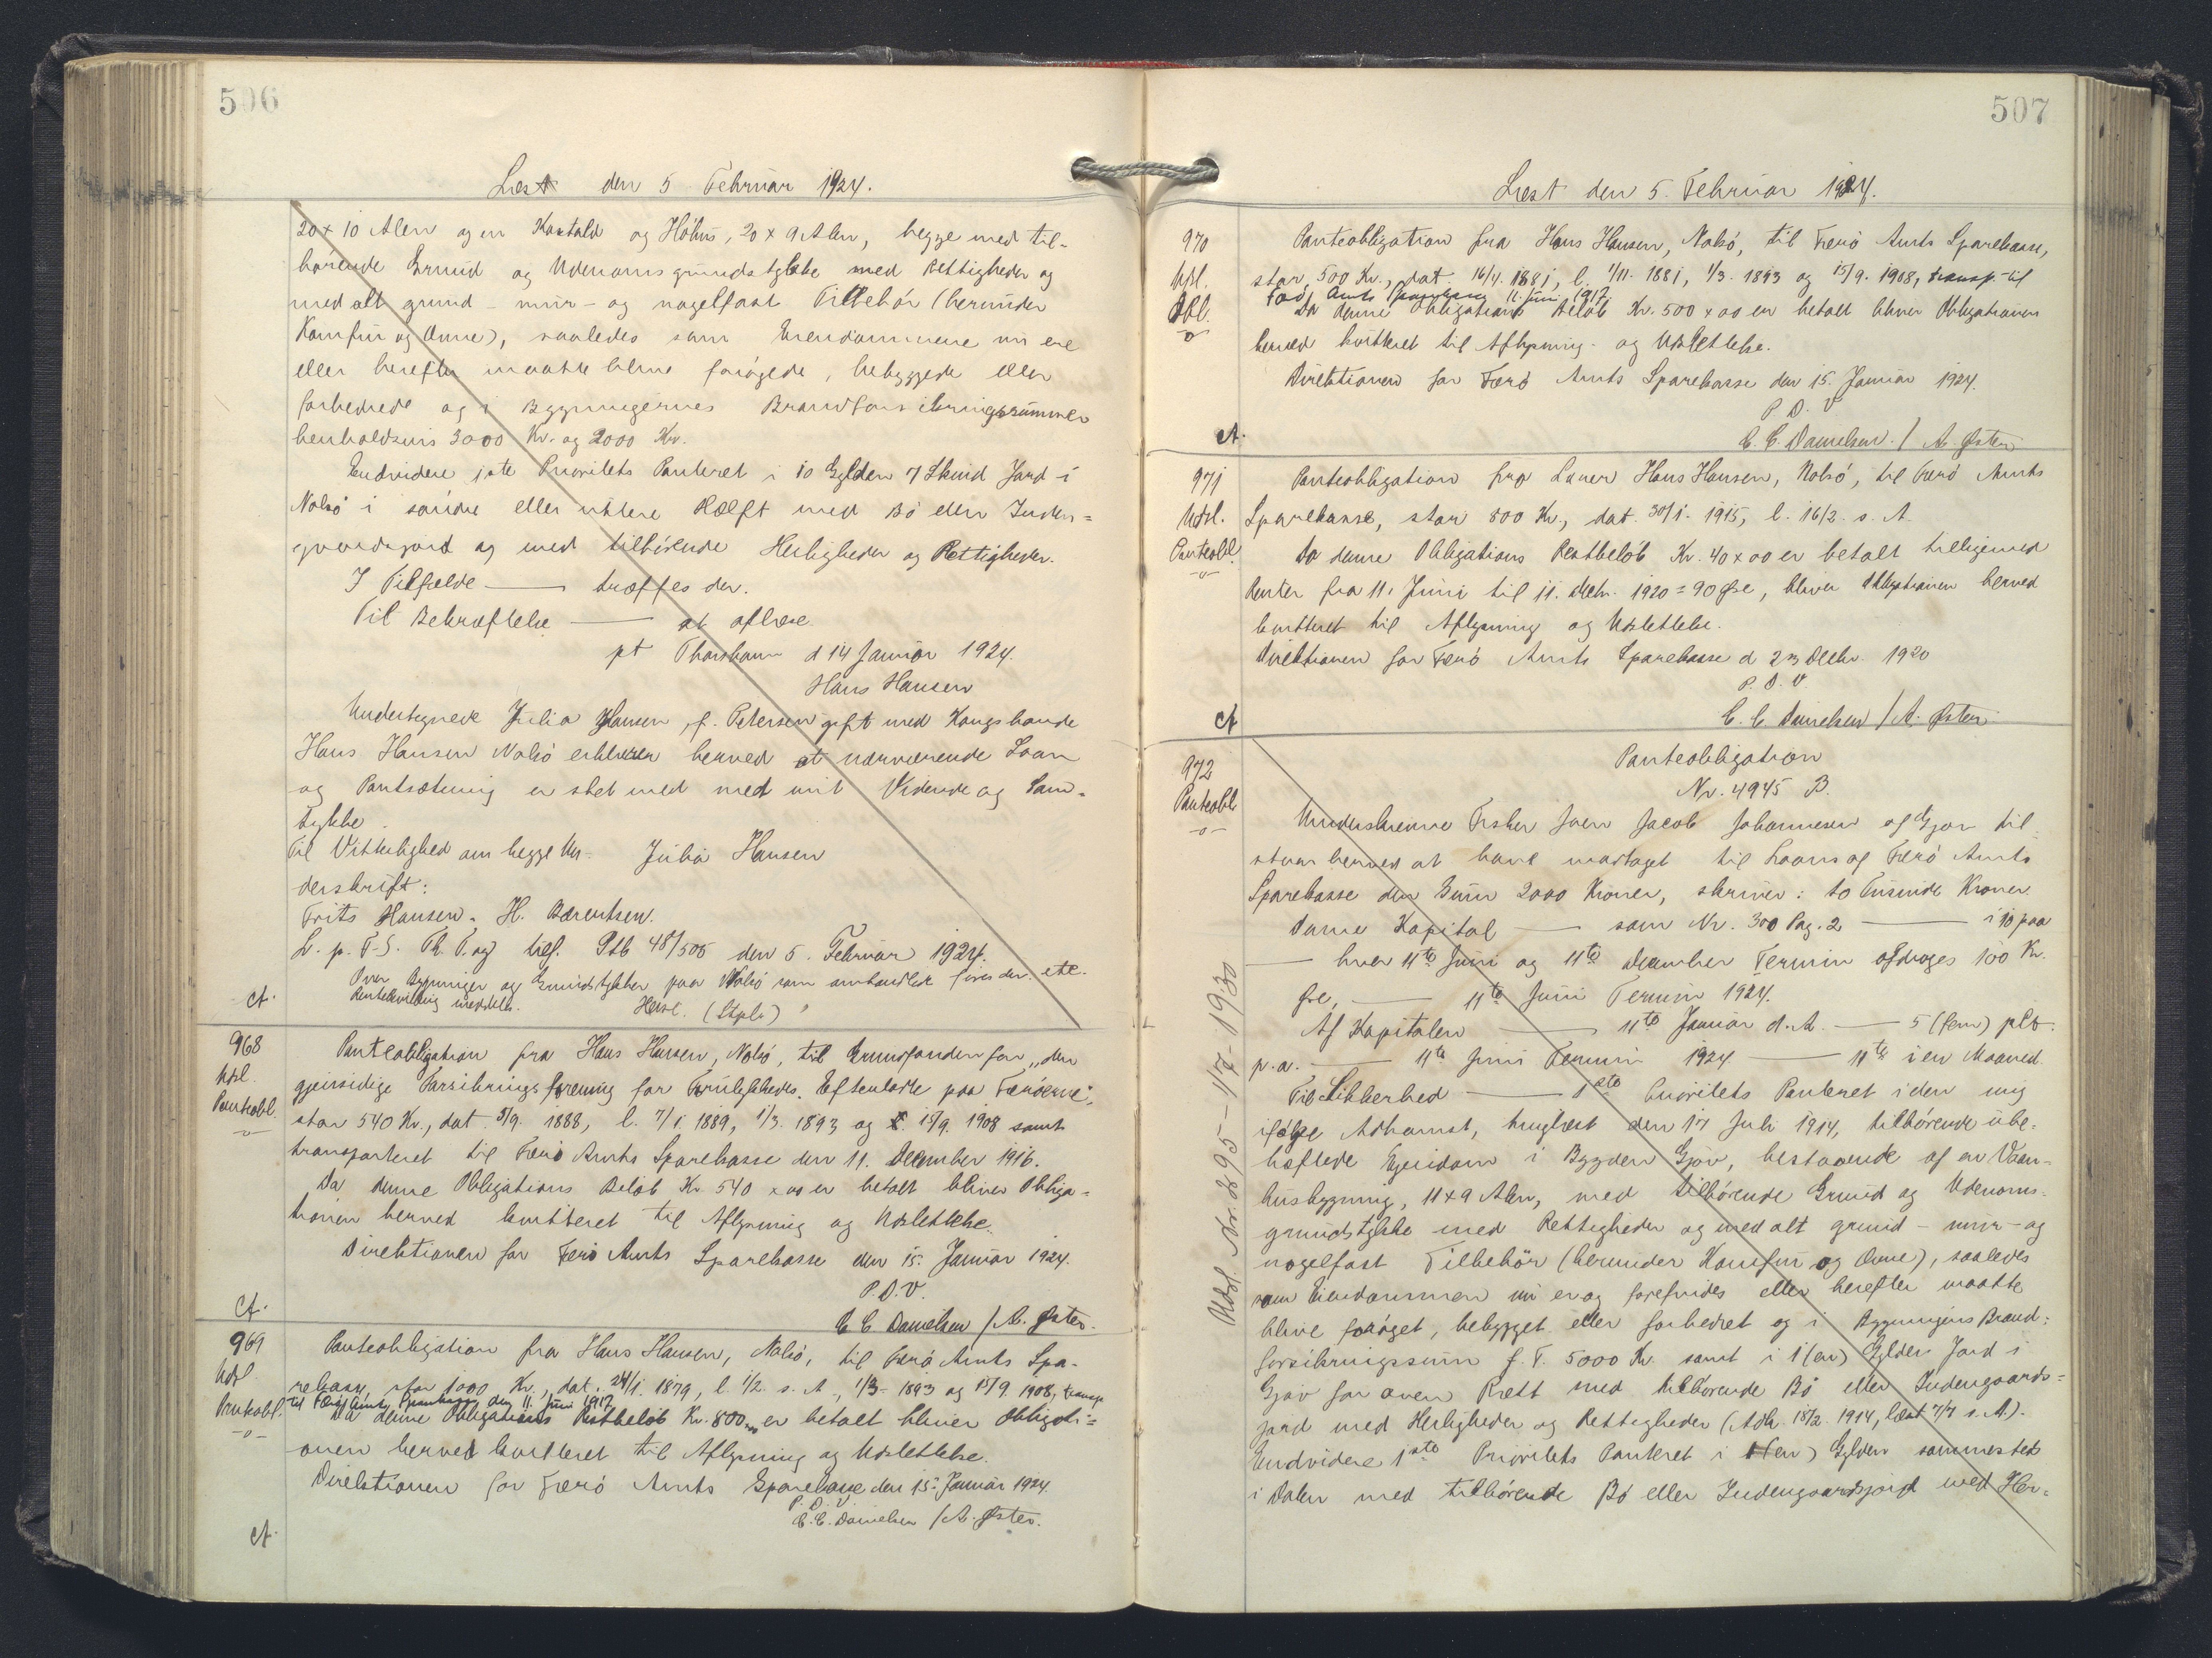 506
Læst den 5 Februar 1924.
20 x 10 Alen og en Kostald og Höhus, 20 x 9 Alen, begge med til-
hörende Grund og Udenomsgrundstykke med Rettigheder og
med alt grund- mur- og nagelfast Tilbehör (herunder
Komfur og Ovne), saaledes som Eiendommene nu ere
eller herefter maatte blive forögede, bebyggede eller
forbedrede og i Bygningernes Brandforsikringssummer
henholdsvis 3000 Kr. og 2000 Kr.
Endvidere 1ste Prioritets Panteret i 10 Gylden 7 Skind Jord i
Nolsö i söndre eller ytre Hælft med Bö eller Inden=
gaardsjord og med tilhörende Herligheder og Rettigheder.
I Tilfælde —— træffes der.
Til Bekræftelse —— at aflæse.
pt Thorshavn d 14 Januar 1924.
Hans Hansen
Undertegnede Julia Hansen, f. Petersen gift med Kongsbonde
Hans Hansen Nolsö erklærer herved at nærværende Laan
og Pantsætning er sket med med mit Vidende og Sam=
tykke.
Til Vitterlighed om begge Un- Julia Hansen
derskrift:
Frits Hansen. H. Bærentsen.
L. p. F-S. Th. T. og tilf. Ptb 48/505 den 5. Februar 1924.
Over Bygninger og Grundstykker paa Nolsö som omhandlet föres der. etc.
Rentekvittering meddelt. (Stpl.)
Ct.
968
Udsl.
Panteobl.
-o-
Panteobligation fra Hans Hansen, Nolsö, til Grundfonden for "den
gjensidige Forsikringsforening for Forulykkedes Efterladte paa Færöerne",
stor 540 Kr., dat. 5/9. 1888, l. 7/1. 1889, 1/3. 1893 og 15/9. 1908 samt
transporteret til Færö Amts Sparekasse den 11. December 1916.
Da denne Obligations Belöb Kr. 540 x 00 er betalt bliver Obliga=
tionen herved kvitteret til Aflysning og Udslettelse.
Direktionen for Færö Amts Sparekasse den 15. Januar 1924.
P. D. V.
C C Danielsen / A. Öster.
Ct.
969
Udsl.
Panteobl.
-o-
Panteobligation fra Hans Hansen, Nolsö, til Færö Amts Spa-
rekasse, stor 1000 Kr., dat. 24/1. 1879, l. 1/2. s. A., 1/3. 1893 og 15/9. 1908, transp.
til Færö Amts Sparekasse den 11. Juni 1917.
Da denne Obligations Restbelöb Kr. 800,00 er betalt bliver Obligati=
onen herved kvitteret til Aflysning og Udslettelse.
Direktionen for Færö Amts Sparekasse den 15. Januar 1924.
P. D. V
C. C. Danielsen / A. Öster.
Ct.
507
Læst den 5. Februar 1924.
970
Udsl.
Obl.
-o-
Panteobligation fra Hans Hansen, Nolsö, til Færö Amts Sparekasse,
stor 500 Kr., dat 16/4. 1881, l. 1/11. 1881, 1/3. 1893 og 15/9. 1908, transp. til
Færö Amts Sparekasse 11. Juni 1917.
Da denne Obligations Belöb Kr. 500 x 00 er betalt bliver Obligationen
herved kvitteret til Aflysning og Udslettelse.
Direktionen for Færö Amts Sparekasse den 15. Januar 1924.
P. D. V
C. C. Danielsen. / A. Öster
Ct.
971
Udsl.
Panteobl.
-o-
Panteobligation fra Lærer Hans Hansen, Nolsö, til Færö Amts
Sparekasse, stor 800 Kr., dat. 30/1. 1915, l. 16/2. s. A.
Da denne Obligations Restbelöb Kr. 40 x 00 er betalt tilligemed
Renter fra 11. Juni til 11. Decbr. 1920 = 90 Øre, bliver Obligationen herved
kvitteret til Aflysning og Udslettelse.
Direktionen for Færö Amts Sparekasse d 23 Decbr. 1920
P. D. V.
C. C. Danielsen / A. Öster
Ct
972
Panteobl
-o-
Panteobligation
Nr. 4945 B.
Underskrevne Fisker Joen Jacob Johannesen af Gjov til-
staar herved at have modtaget til Laans af Færö Amts
Sparekasse den Sum 2000 Kroner, skriver: to Tusinde Kroner.
Denne Kapital —— som Nr. 300 Pag. 2 —— i 10 paa
—— hver 11te Juni og 11te December Termin afdrages 100 Kr.
Øre, —— 11te Juni Termin 1924.
Af Kapitalen —— 11te Januar d. A. —— 5 (fem) pCt.
p. a. —— 11te Juni Termin 1924 —— 11te i en Maaned
Til Sikkerhed —— 1ste Prioritets Panteret i den mig
ifölge Adkomst, tinglæst den 17 Juli 1914, tilhörende ube-
hæftede Ejendom i Bygden Gjov, bestaaende af en Vaan-
husbygning, 11 x 9 Alen, med tilhörende Grund og Udenoms-
grundstykke med Rettigheder og med alt grund- mur- og
nagelfast Tilbehör (herunder Komfur og Ovne), saaledes
som Eiendommen nu er og forefindes eller herefter maatte
blive foröget, bebygget eller forbedret og i Bygningens Brand=
forsikringssum f. T. 5000 Kr. samt i 1 (en) Gylden Jord i
Gjov for oven Rætt med tilhörende Bö eller Indengaards=
jord med Herligheder og Rettigheder (Adk. 18/2. 1914, læst 17/7 s. A.).
Endvidere 1ste Prioritets Panteret i 1 (en) Gylden sammesteds
i Dalen med tilhörende Bö eller Indengaardsjord med Her=
Udsl. Nr. 2895 - 1/7- 1930